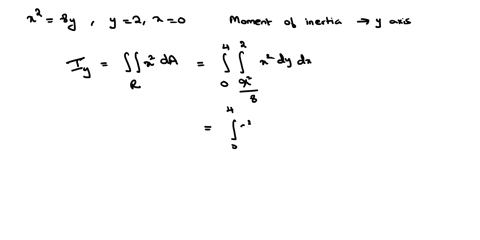 x² = 8y , y = 2, x = 0 Moment of inertia → y axis
I_y = ∬_R x² dA = ∫_0^4 ∫_{x²/8}^2 x² dy dx
= ∫_0^4